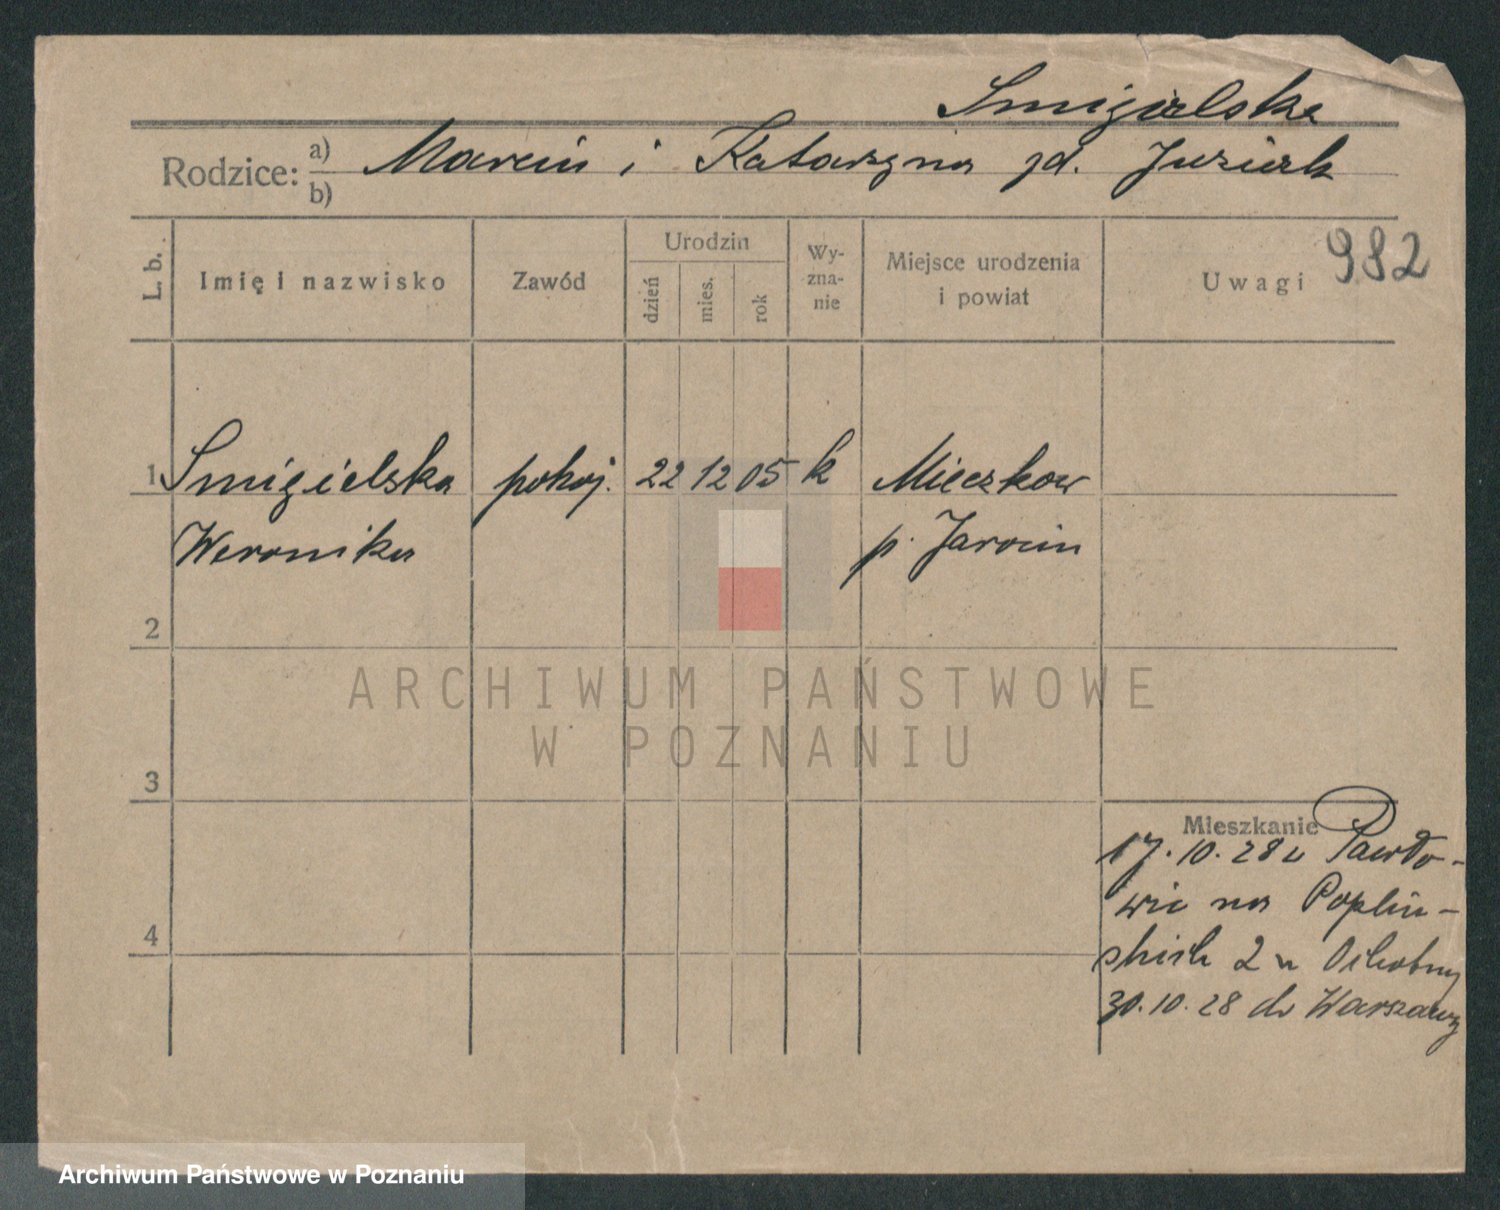 Smigielska
Rodzice: a) Marcin i Katarzyna zd.
b)
L. b. Imię i nazwisko Zawód Urodzin dzień mies. rok Wy-zna-nie Miejsce urodzenia i powiat Uwagi 982
1 Smigielska pokoj. 22 12 05 k Mieczkow
Weronika p. Jarocin
2
ARCHIWUM PAŃSTWOWE
W POZNANIU
3
Mieszkanie
17.10.28 z Pawło-
wic na Popliń-
skich 2 u
4
30.10.28 do Warszawy
Archiwum Państwowe w Poznaniu